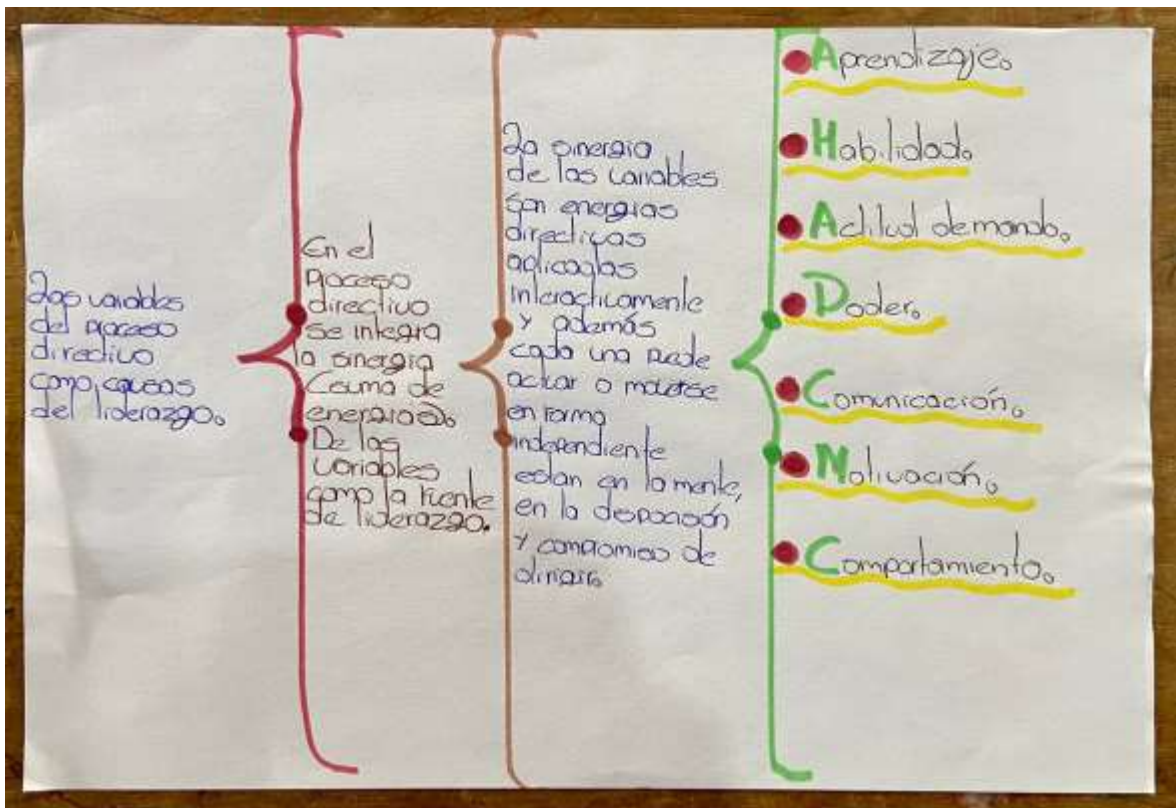 Las variables
del proceso
directivo
como causas
del liderazgo.
En el
proceso
directivo
se integra
la sinergia
(suma de
energias).
De las
variables
como la fuente
de liderazgo.
La sinergia
de las variables
son energias
directivas
aplicadas
interactivamente
y además
cada una puede
actuar o moverse
en forma
independiente
estan en la mente,
en la disposición
y compromiso de
dirigir.
Aprendizaje.
Habilidad.
Actitud de mando.
Poder.
Comunicación.
Motivación.
Comportamiento.